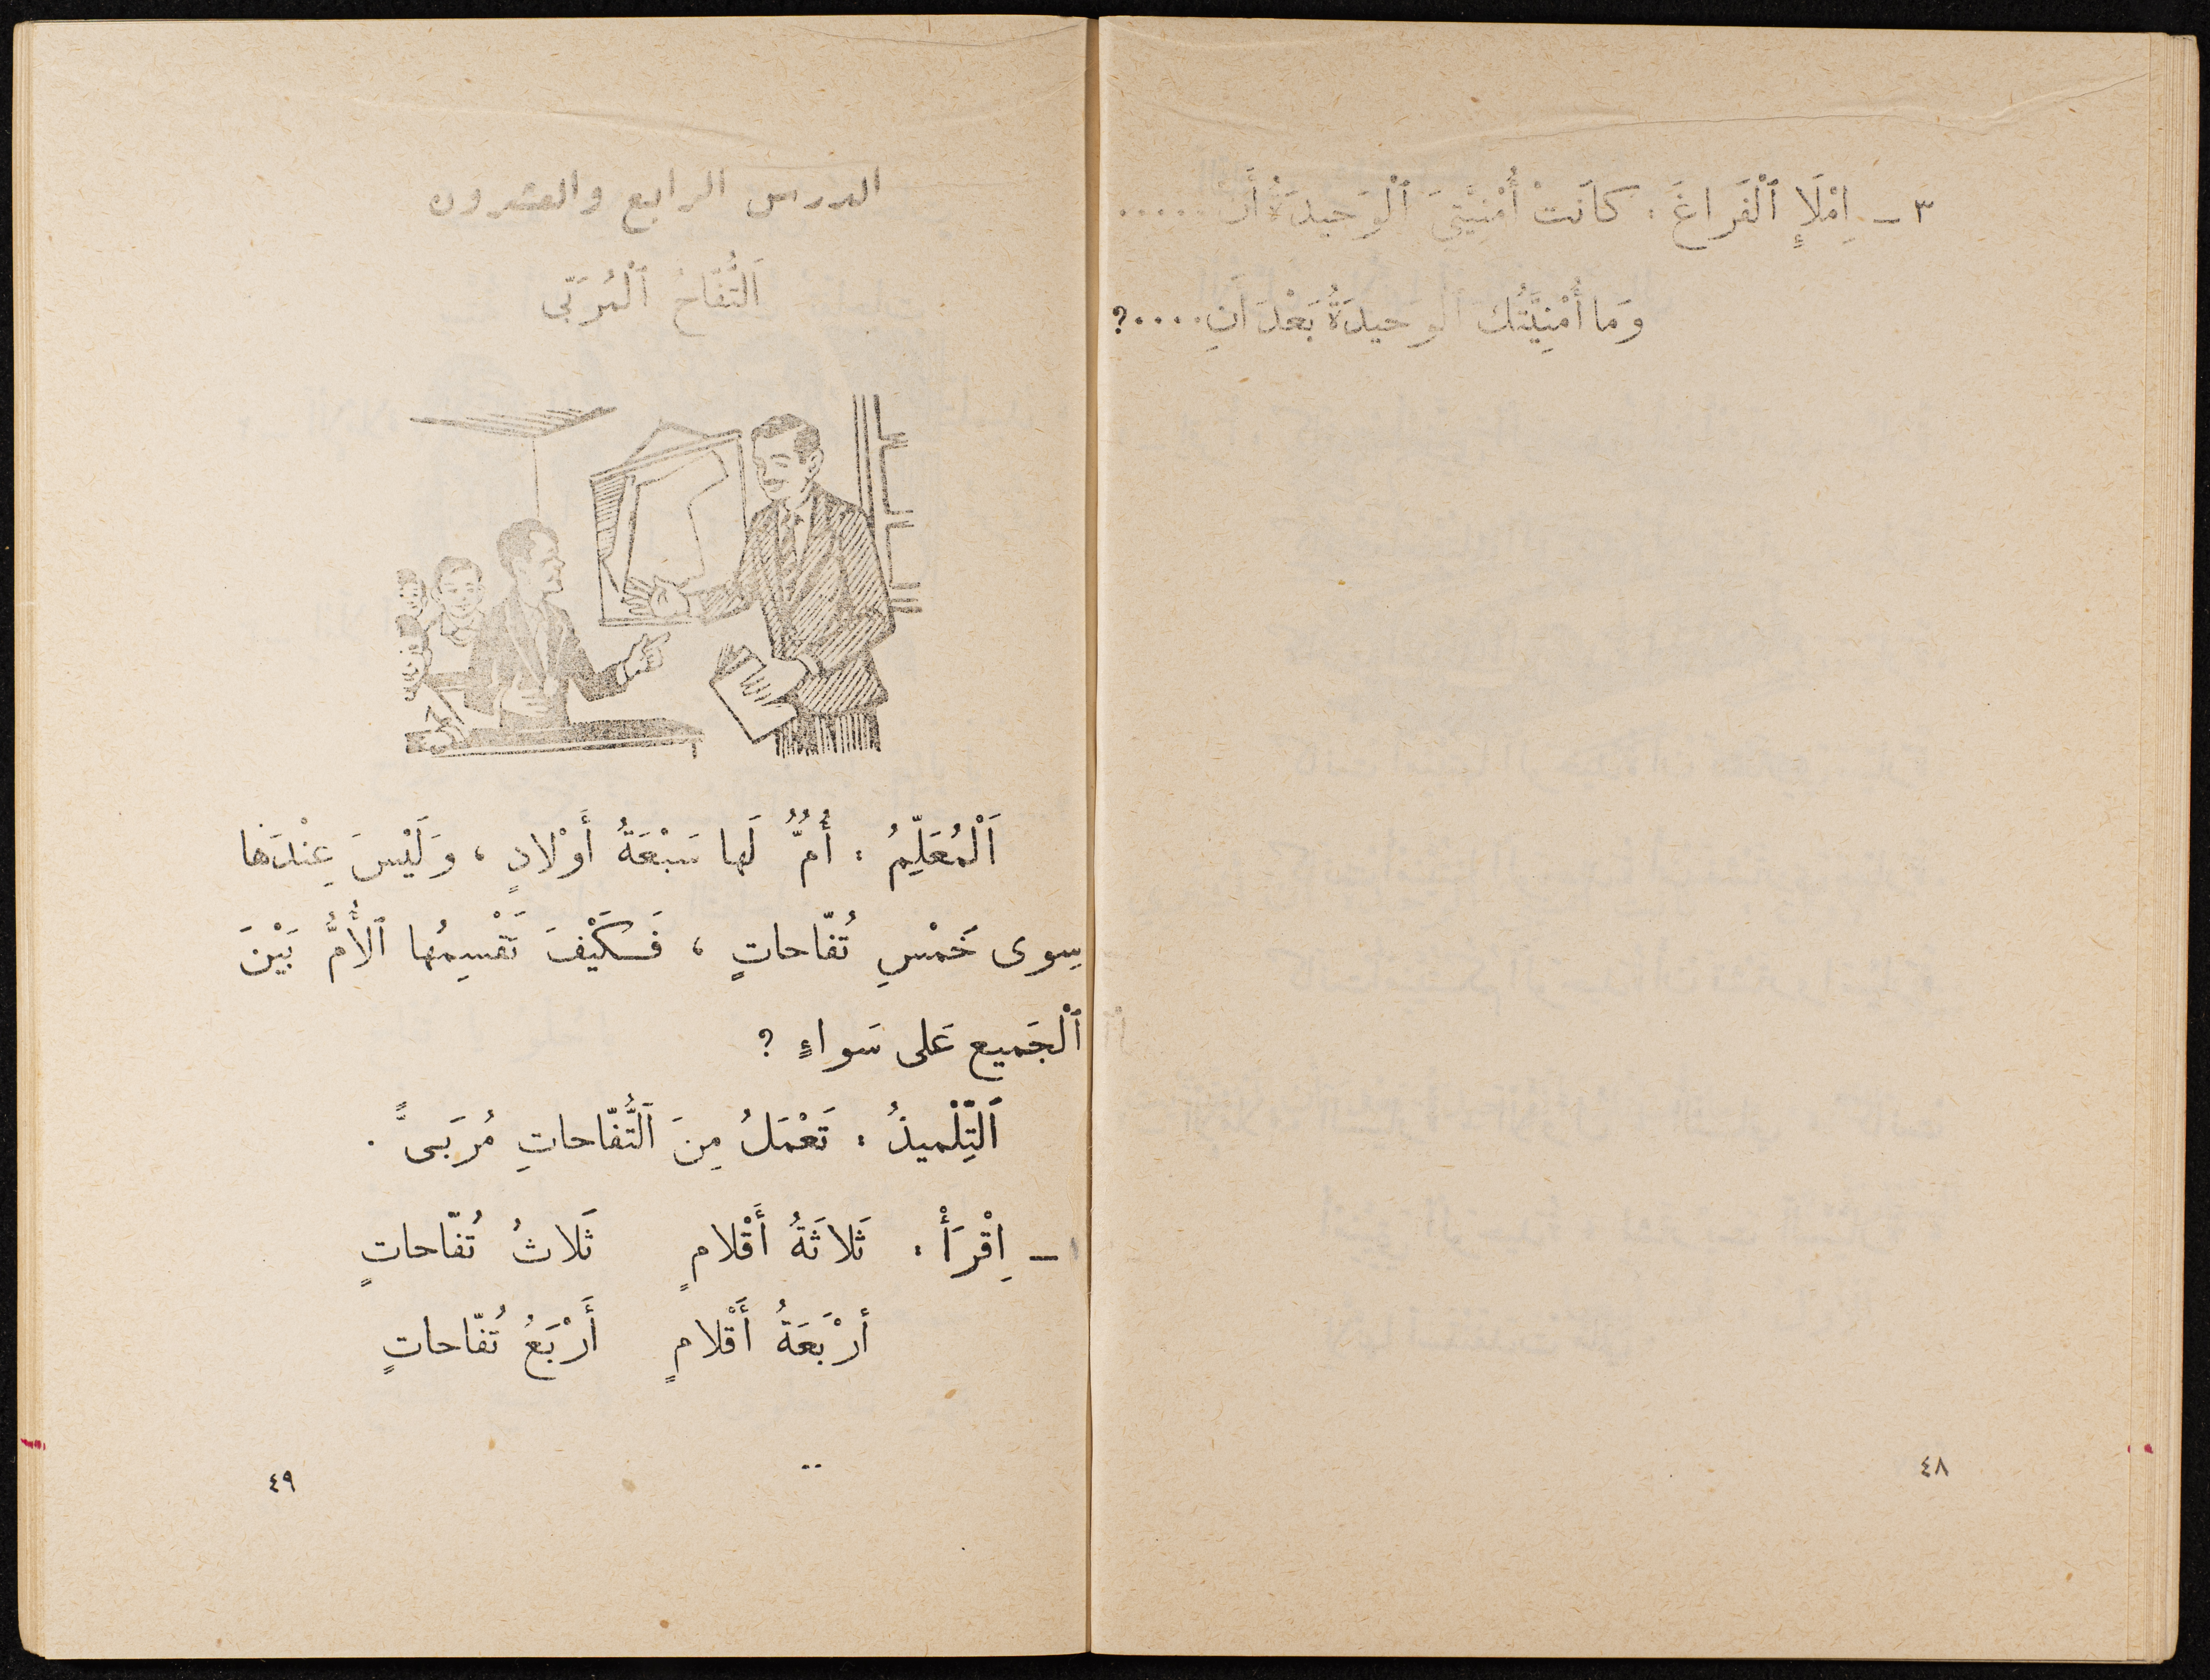 ٣ ـ اِمْلَإِ ٱلْفَراغَ : كانَتْ أُمْنِيَّتِيَ ٱلْوَحيدَةُ أَنْ .....
وَما أُمْنِيَّتُكَ ٱلْوَحيدَةُ بَعْدَ أَنِ ....؟
٤٨
الدرس الرابع والعشرون
اَلتُّفّاحُ ٱلْمُرَبّى
اَلْمُعَلِّمُ : أُمٌّ لَها سَبْعَةُ أَوْلادٍ ، وَلَيْسَ عِنْدَها
سِوى خَمْسِ تُفّاحاتٍ ، فَكَيْفَ تَقْسِمُها ٱلأُمُّ بَيْنَ
ٱلْجَميع عَلى سَواءٍ ؟
اَلتِّلْميذُ : تَعْمَلُ مِنَ ٱلتُّفّاحاتِ مُرَبَىً .
١ ـ اِقْرَأْ : ثَلاثَةُ أَقْلامٍ ثَلاثُ تُفّاحاتٍ
أرْبَعَةُ أَقْلامٍ أَرْبَعُ تُفّاحاتٍ
٤٩